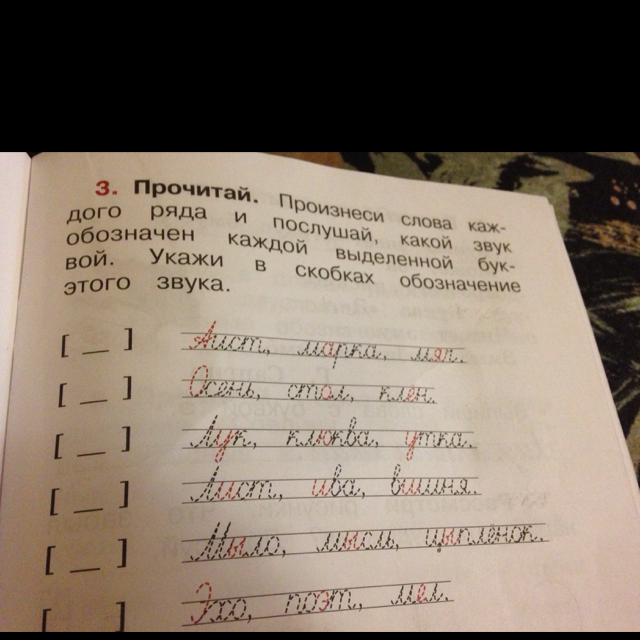 3. Прочитай. Произнеси слова каж-
дого ряда и послушай, какой звук
обозначен каждой выделенной бук-
вой. Укажи в скобках обозначение
этого звука.
[ _ ] Аист, марка, мяч.
[ _ ] Осень, стол, клён.
[ _ ] Лук, клюква, утка.
[ _ ] Лист, ива, вишня.
[ _ ] Мыло, мысль, цыплёнок.
[ _ ] Эхо, поэт, мел.